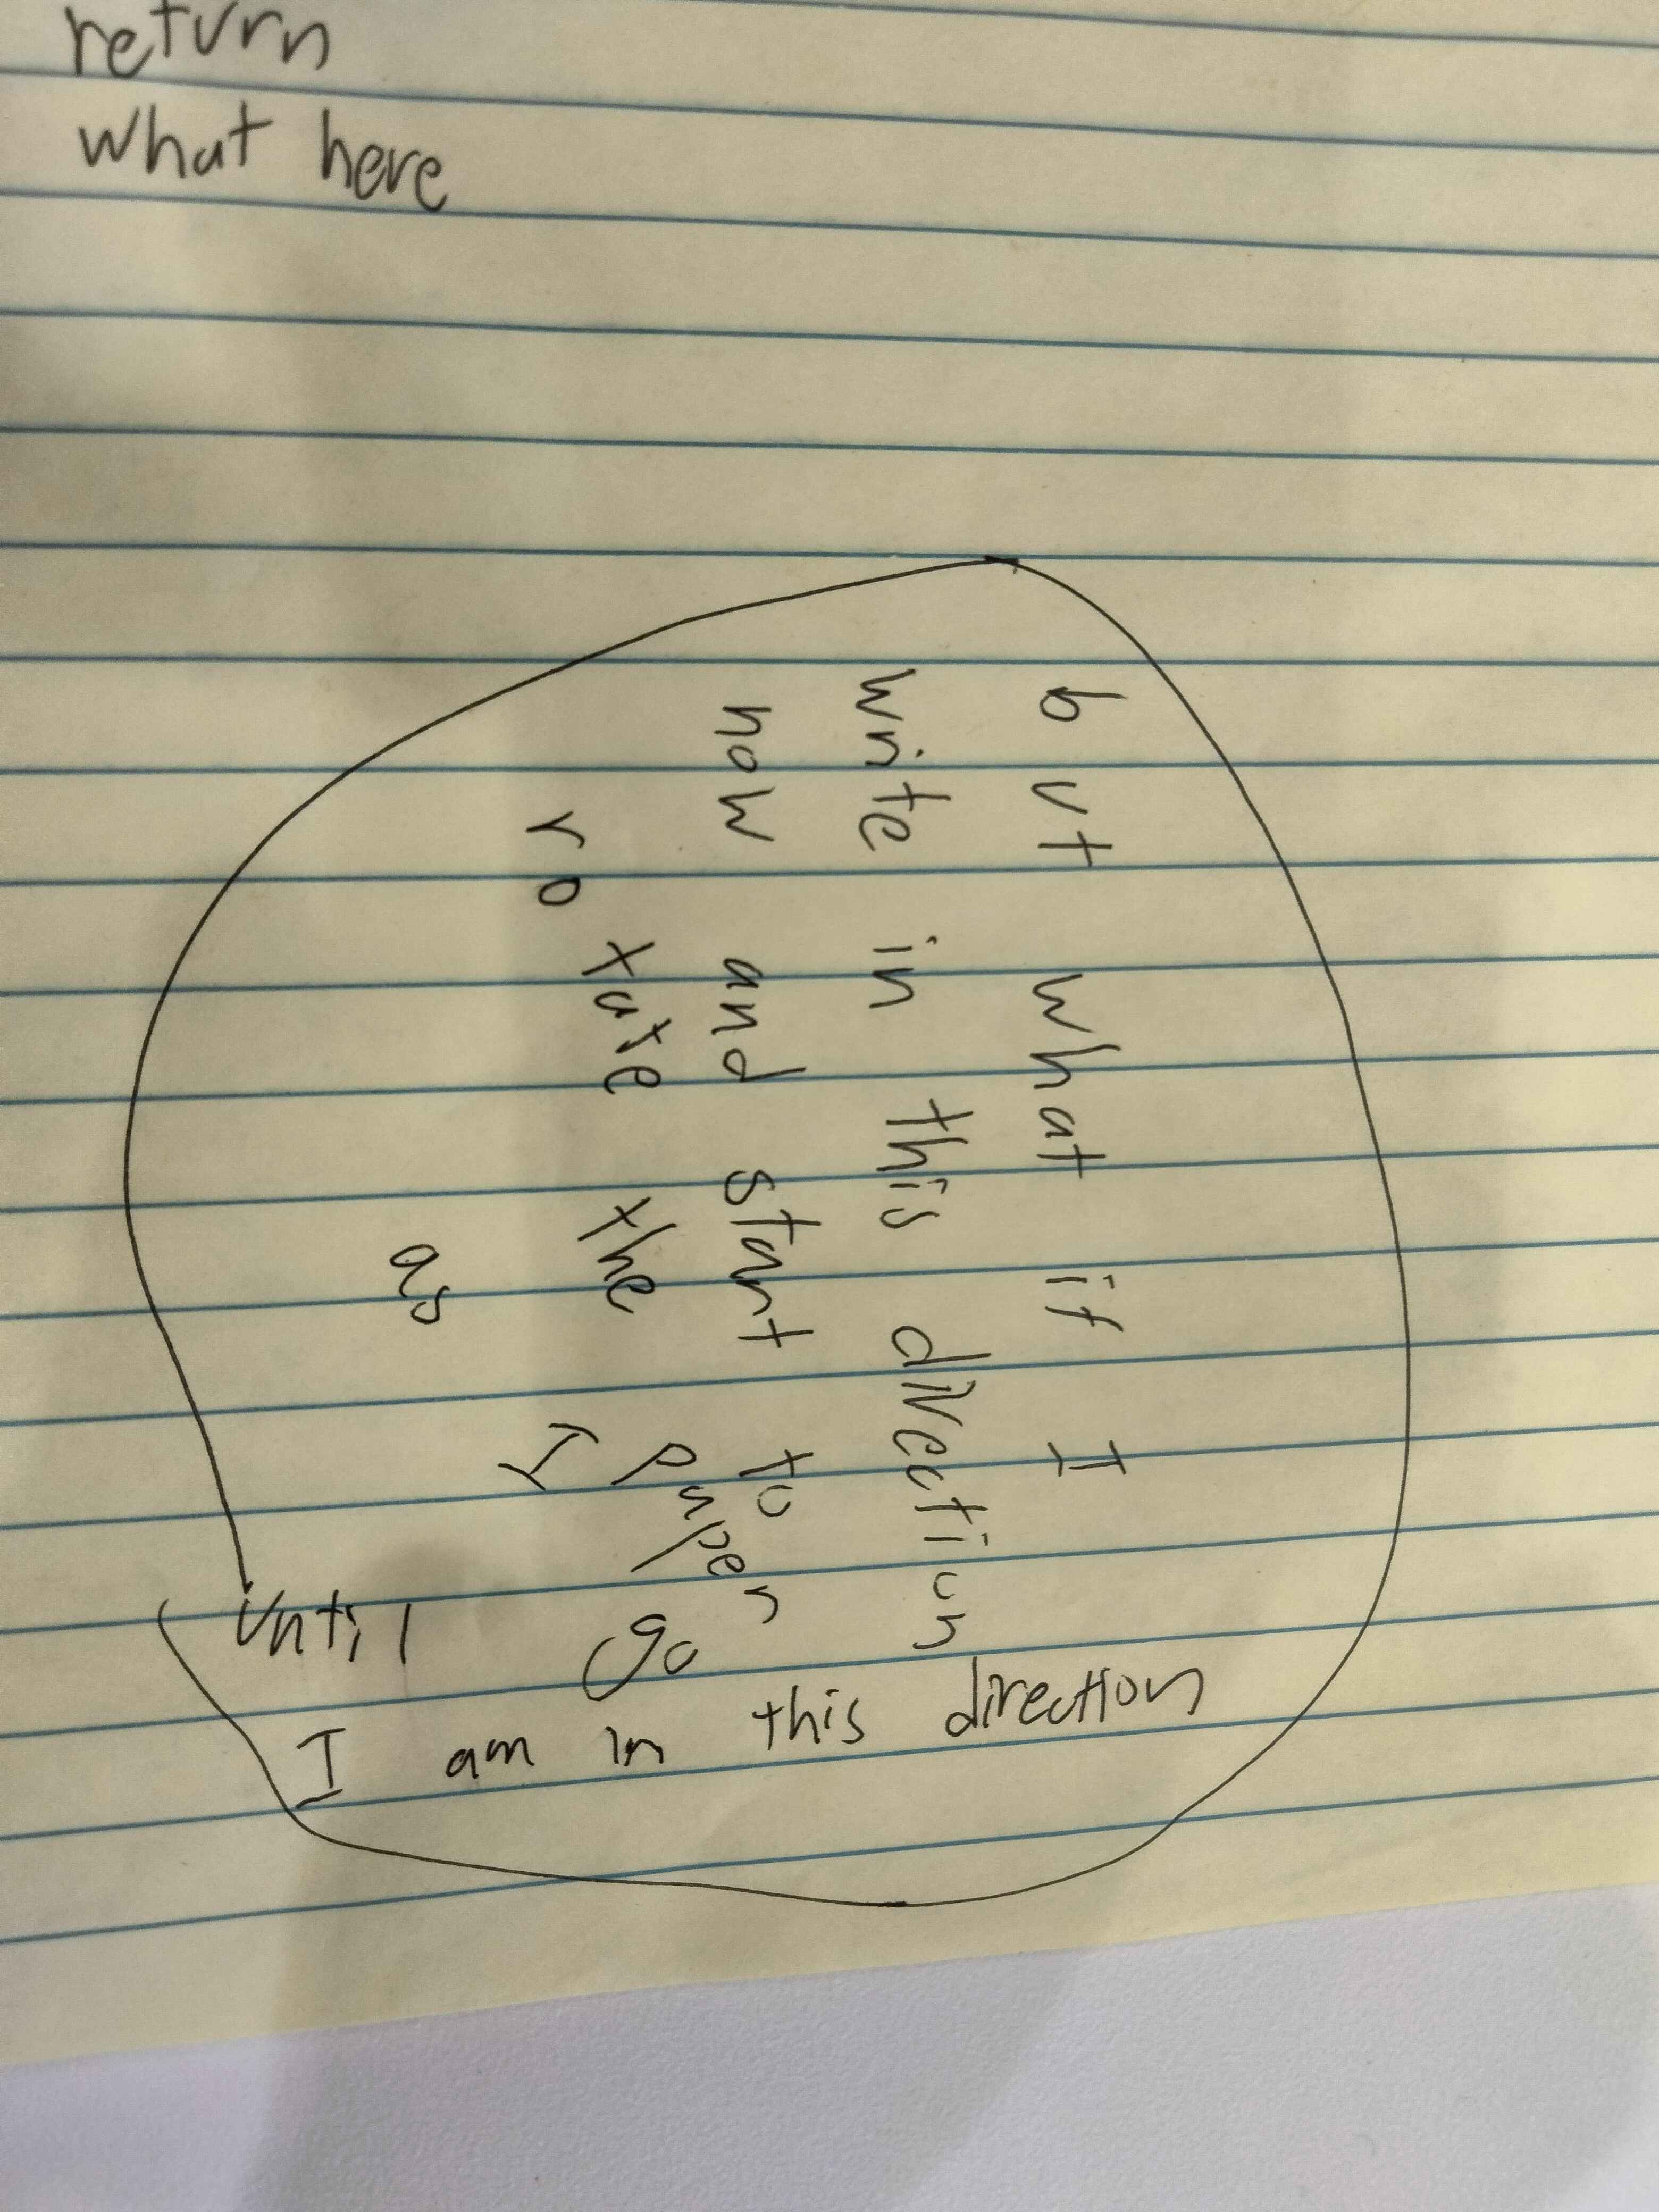 return
what here
but what if I
write in this direction
now and start to
rotate the paper
as I go
until
I am in this direction